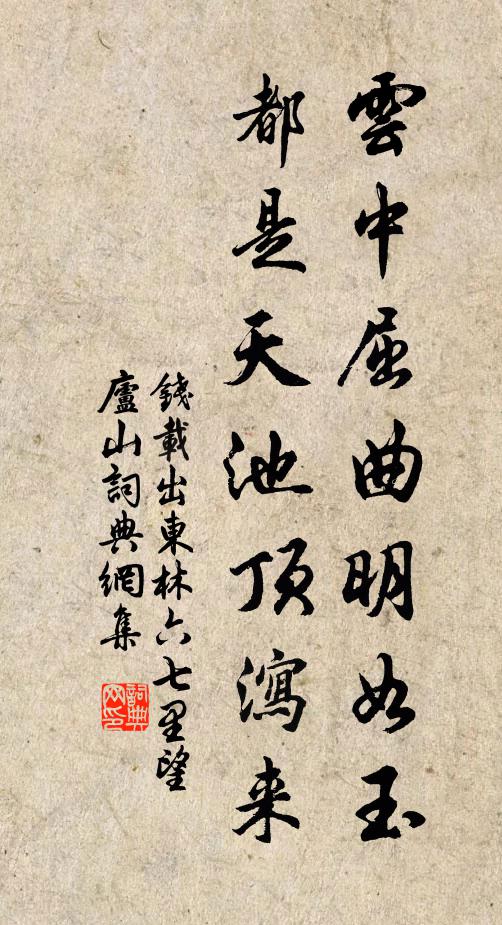 雲中屈曲明如玉
都是天池頂瀉来
錢載出東林六七里望
廬山詞典網集
詞典网印